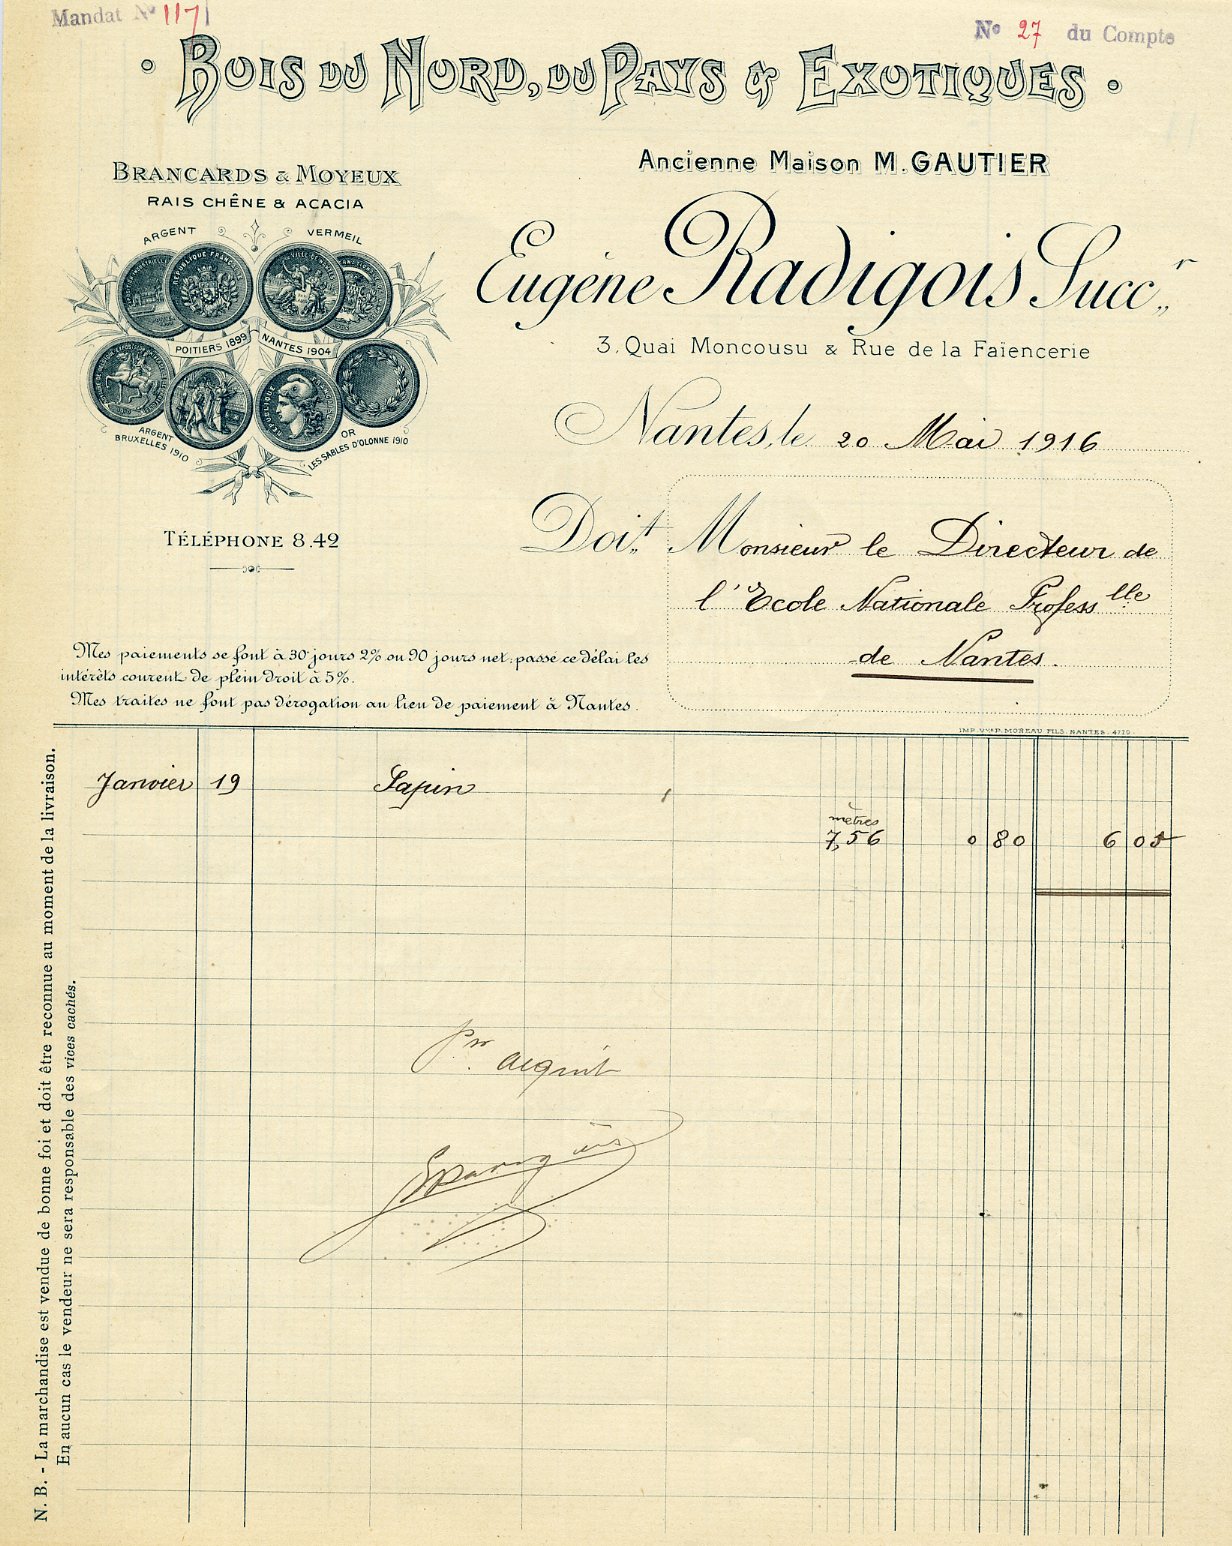 Mandat Nº 1171
Nº 27 du Compte
BOIS DU NORD, DU PAYS & EXOTIQUES
BRANCARDS & MOYEUX
RAIS CHÊNE & ACACIA
ARGENT VERMEIL
POITIERS 1899 NANTES 1904
ARGENT
BRUXELLES 1910
OR
LES SABLES D'OLONNE 1910
TÉLÉPHONE 8.42
Ancienne Maison M. GAUTIER
Eugène Radigois Succr
3, Quai Moncousu & Rue de la Faïencerie
Nantes, le 20 Mai 1916
Doit Monsieur le Directeur de
l'Ecole Nationale Professlle
de Nantes.
Mes paiements se font à 30 jours 2% ou 90 jours net, passé ce délai les
intérêts courent de plein droit à 5%.
Mes traites ne font pas dérogation au lieu de paiement à Nantes.
IMP. Vve P. MOREAU FILS. NANTES. 4770
Janvier 19 Sapin
mètres
7,56 0 80 6 05
pr acquit
N. B. - La marchandise est vendue de bonne foi et doit être reconnue au moment de la livraison.
En aucun cas le vendeur ne sera responsable des vices cachés.